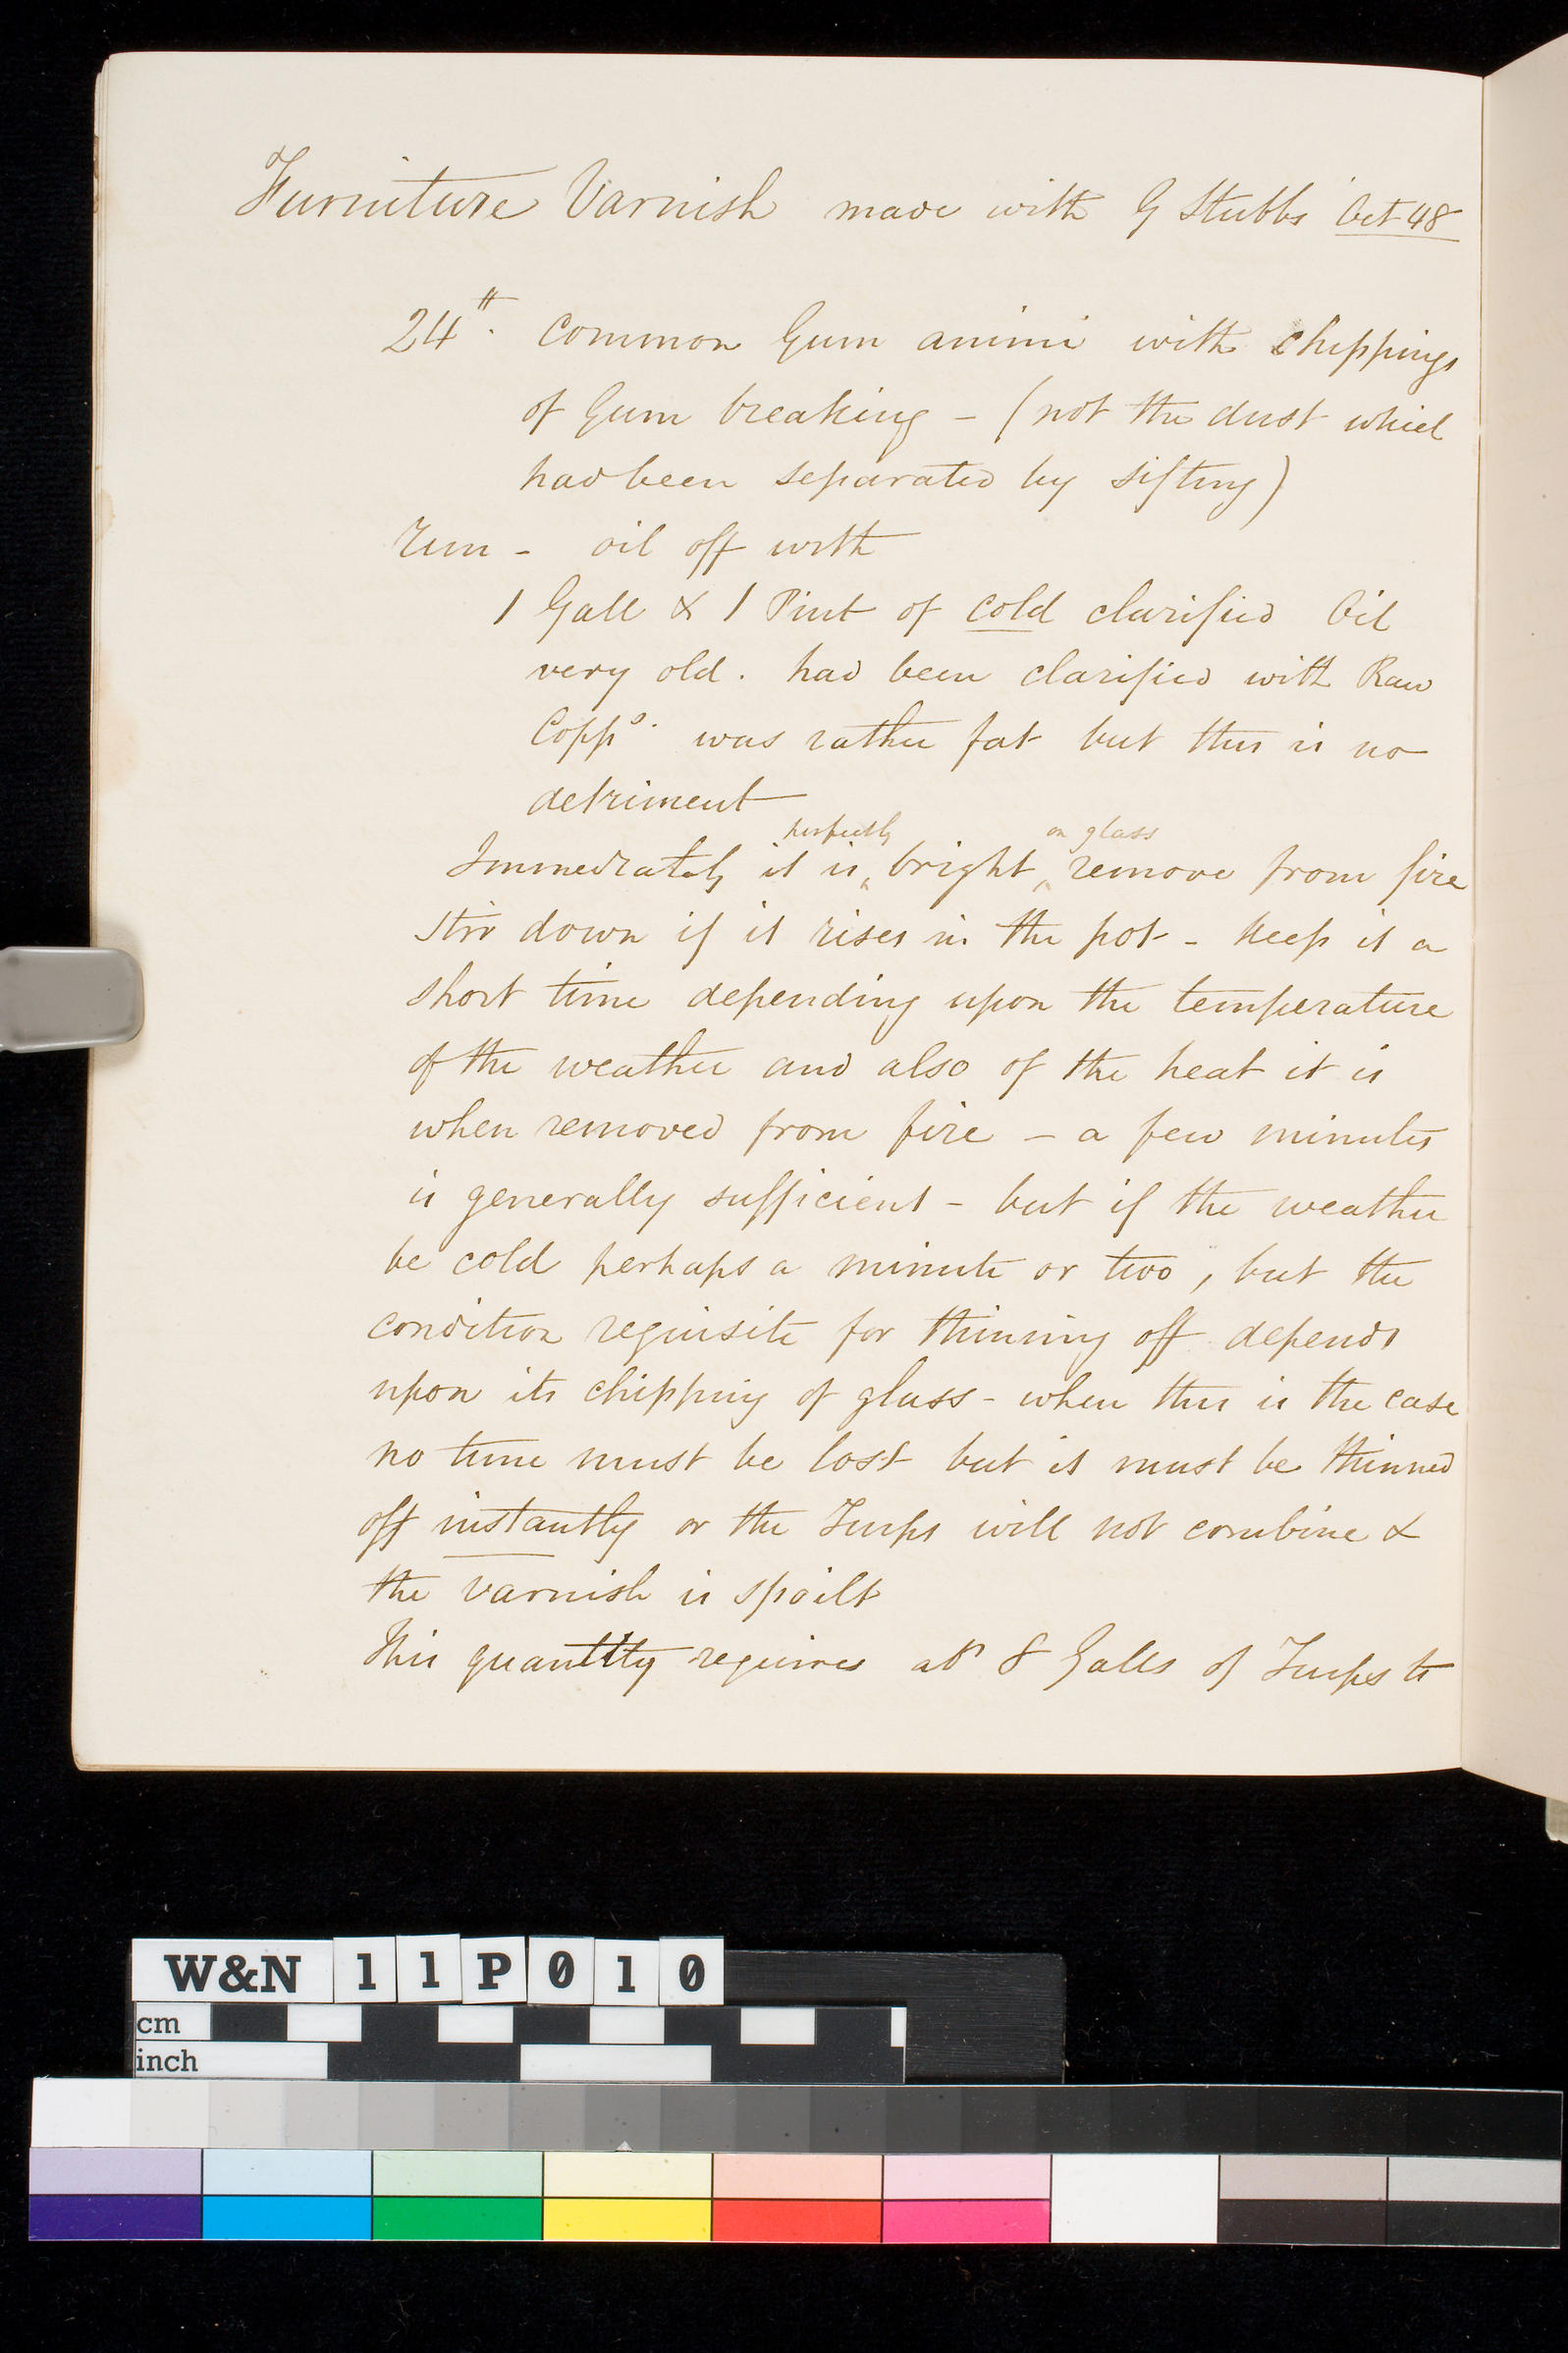 Furniture Varnish made with G Stubbs Oct 48
24 ℔. Common Gum animi with chippings
of Gum breaking - (not the dust which
had been separated by sifting)
run - oil off with
1 Gall & 1 Pint of cold clarified Oil
very old. had been clarified with Raw
Copps. was rather fat but this is no
detriment
perfectly on glass
Immediately it is bright, remove from fire
stir down if it rises in the pot - keep it a
short time depending upon the temperature
of the weather and also of the heat it is
when removed from fire - a few minutes
is generally sufficient - but if the weather
be cold perhaps a minute or two, but the
condition requisite for thinning off depends
upon its chipping of glass - when this is the case
no time must be lost but it must be thinned
off instantly or the Turps will not combine &
the varnish is spoilt
This quantity requires abt 8 Galls of Turps to
W&N 11P010
cm
inch